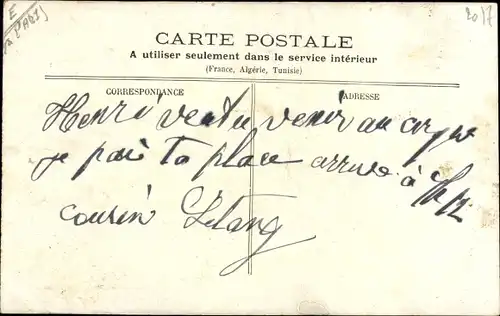 CARTE POSTALE
A utiliser seulement dans le service intérieur
(France, Algérie, Tunisie)
CORRESPONDANCE
ADRESSE
Henri veutu venir au cirque
je pai ta place arrive à
cousin Letang